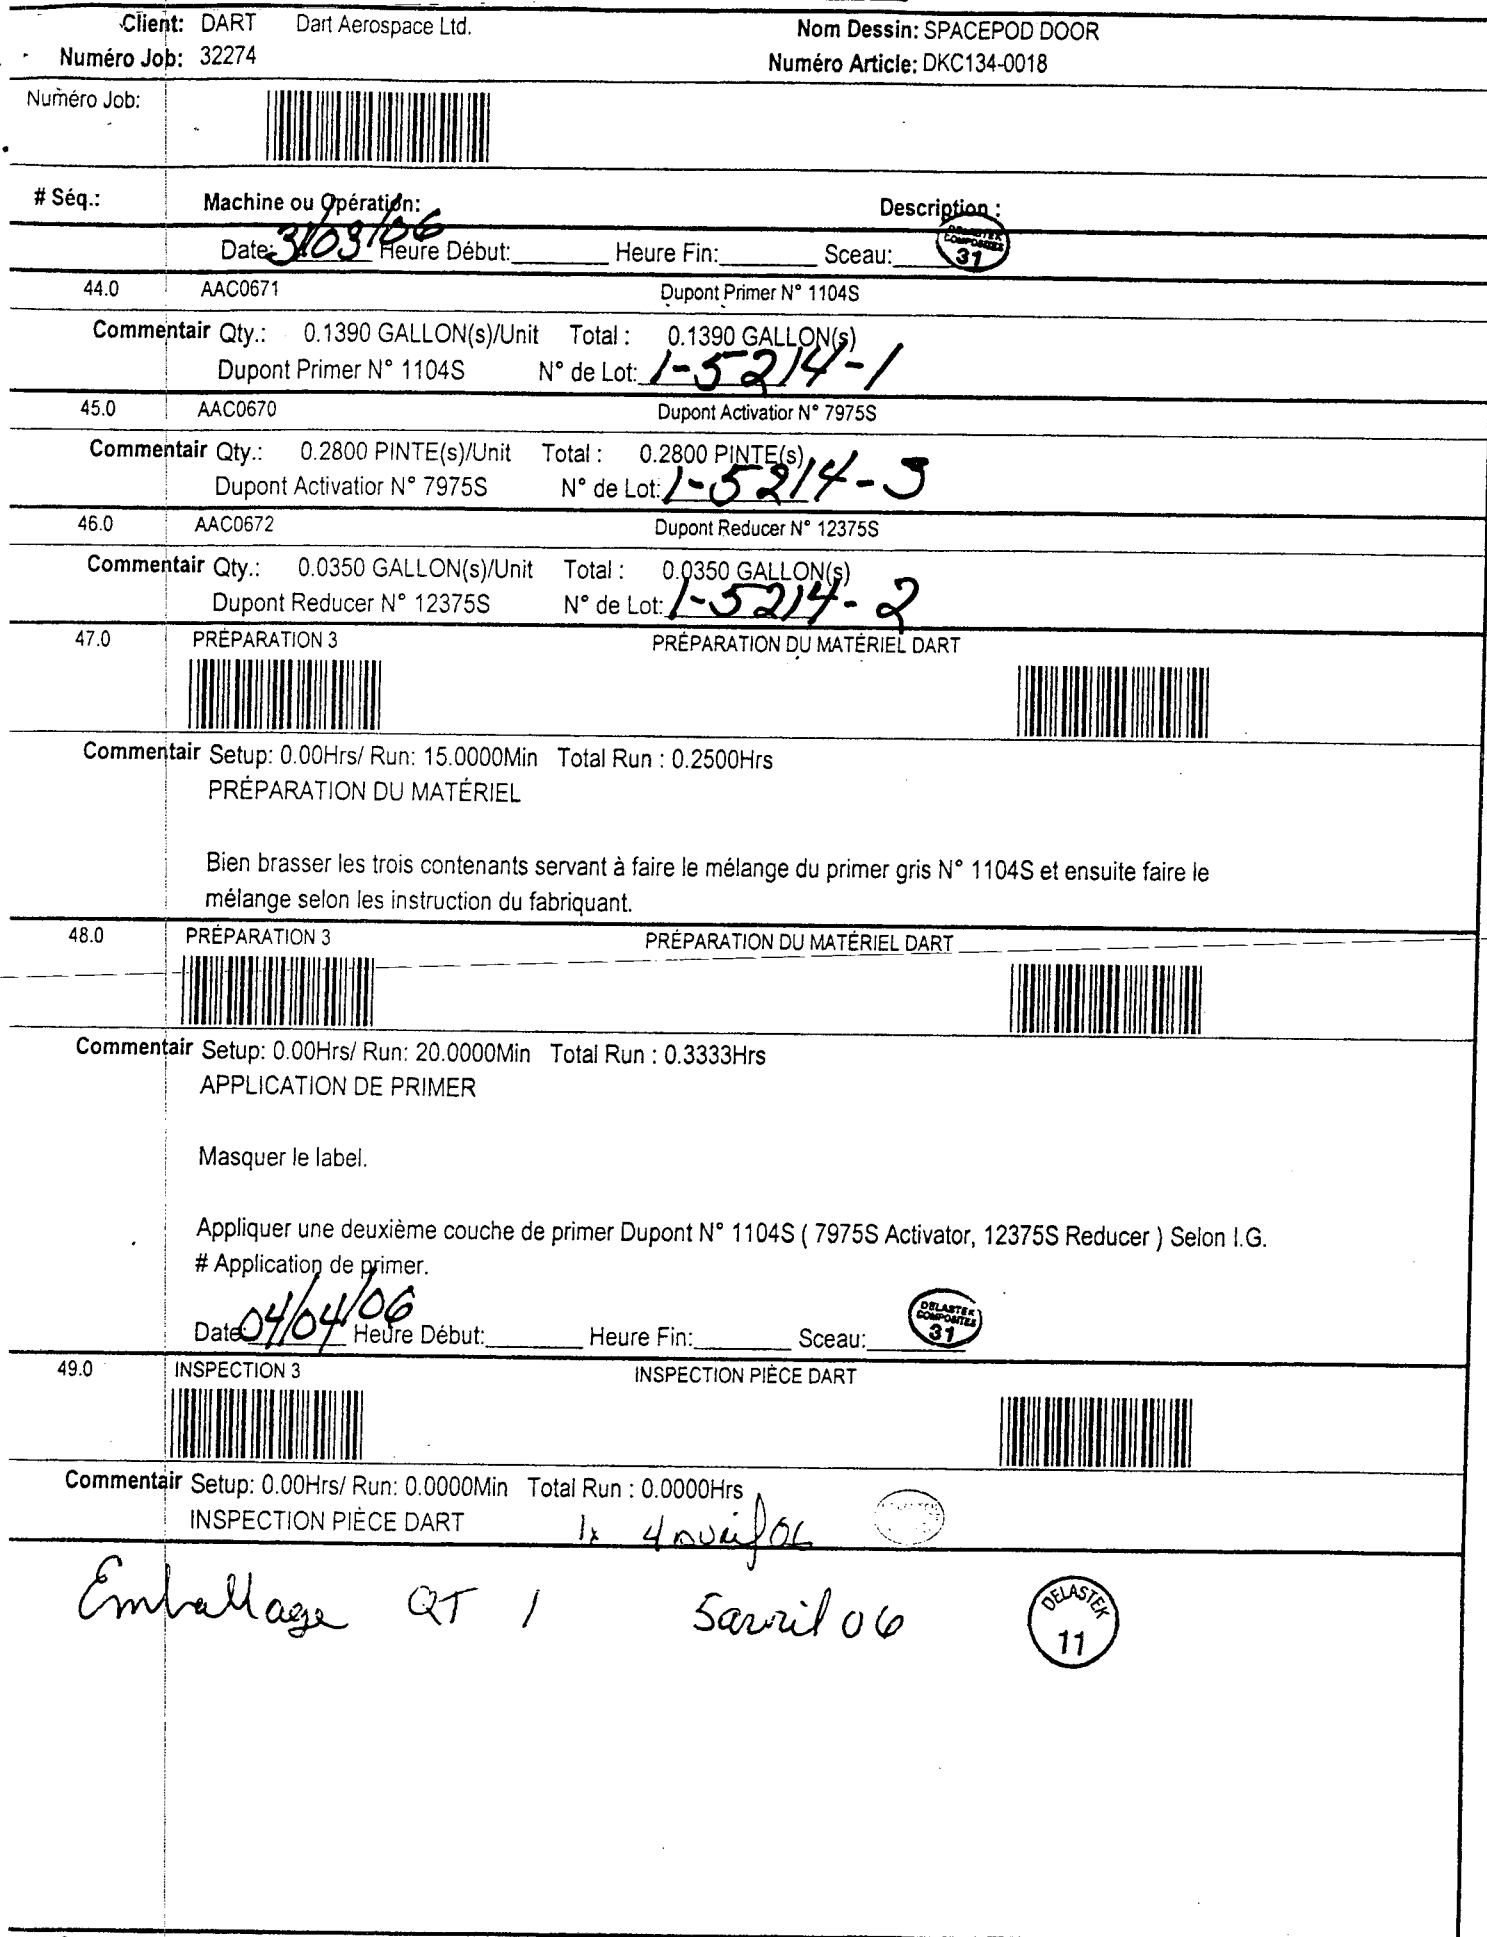 Client: DART Dart Aerospace Ltd. Nom Dessin: SPACEPOD DOOR
Numéro Job: 32274 Numéro Article: DKC134-0018
Numéro Job:
# Séq.: Machine ou Opération: Description :
Date: 31/03/06 Heure Début: Heure Fin: Sceau: DELASTEK COMPOSITES 31
44.0 AAC0671 Dupont Primer N° 1104S
Commentair Qty.: 0.1390 GALLON(s)/Unit Total : 0.1390 GALLON(s)
Dupont Primer N° 1104S N° de Lot: 1-5214-1
45.0 AAC0670 Dupont Activatior N° 7975S
Commentair Qty.: 0.2800 PINTE(s)/Unit Total : 0.2800 PINTE(s)
Dupont Activatior N° 7975S N° de Lot: 1-5214-3
46.0 AAC0672 Dupont Reducer N° 12375S
Commentair Qty.: 0.0350 GALLON(s)/Unit Total : 0.0350 GALLON(s)
Dupont Reducer N° 12375S N° de Lot: 1-5214-2
47.0 PRÉPARATION 3 PRÉPARATION DU MATÉRIEL DART
Commentair Setup: 0.00Hrs/ Run: 15.0000Min Total Run : 0.2500Hrs
PRÉPARATION DU MATÉRIEL
Bien brasser les trois contenants servant à faire le mélange du primer gris N° 1104S et ensuite faire le
mélange selon les instruction du fabriquant.
48.0 PRÉPARATION 3 PRÉPARATION DU MATÉRIEL DART
Commentair Setup: 0.00Hrs/ Run: 20.0000Min Total Run : 0.3333Hrs
APPLICATION DE PRIMER
Masquer le label.
Appliquer une deuxième couche de primer Dupont N° 1104S ( 7975S Activator, 12375S Reducer ) Selon I.G.
# Application de primer.
Date 04/04/06 Heure Début: Heure Fin: Sceau: DELASTEK COMPOSITES 31
49.0 INSPECTION 3 INSPECTION PIÈCE DART
Commentair Setup: 0.00Hrs/ Run: 0.0000Min Total Run : 0.0000Hrs
INSPECTION PIÈCE DART 1x 4 avril 06
Emballage QT 1 5 avril 06 DELASTEK 11